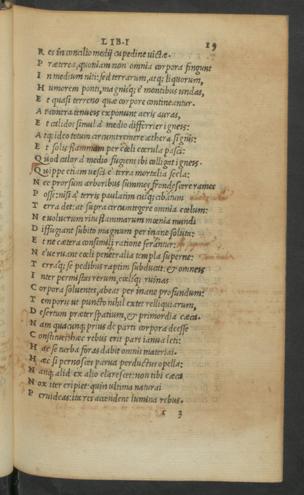 LIB·I 19
R es in concilio medij cupedine victæ.
P ræterea, quoniam non omnia corpora fingunt
I n medium niti: sed terrarum, atq; liquorum,
H umorem ponti, magnisq; e montibus undas,
E t quasi terreno quæ corpore contineantur.
A t contra tenueis exponunt aeris auras,
E t calidos simul a medio differrier igneis:
A tq; ideo totum circuntremere æthera signis:
E t solis flammam per cœli cœrula pasci:
Q uod calor a medio fugiens ibi colligat igneis.
Q uippe etiam vesci e terra mortalia secla:
N ec prorsum arboribus summos frondescere ramos
P osse: nisi a terris paulatim cuiq; cibatum
T erra det: at supra circuntegere omnia cœlum:
N e volucrum ritu flammarum mœnia mundi
D iffugiant subito magnum per inane soluta:
E t ne cætera consimili ratione sequantur:
N eue ruant cœli penetralia templa superne:
T erraq; se pedibus raptim subducat: & omneis
I nter permistas rerum, cœliq; ruinas
C orpora soluentes, abeat per inane profundum:
T emporis ut puncto nihil extet relliquiarum,
D esertum præter spatium, & primordia cæca.
N am quacunq; prius de parti corpora deesse
C onstitues: hæc rebus erit pars ianua leti:
H ac se turba foras dabit omnis materiai.
H æc si pernosces parua perductus opella:
N anq; alid ex alio clarescet: non tibi cæca
N ox iter eripiet: quin ultima naturai
P eruideas: ita res accendent lumina rebus.
c 3